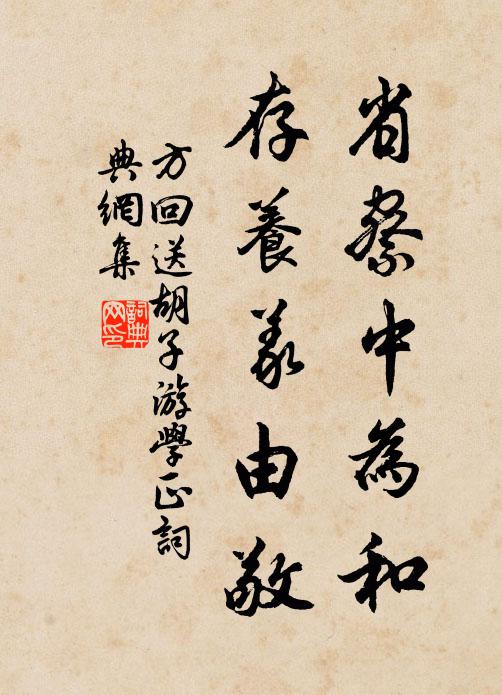 省察中為和
存養義由敬
方回送胡子游學正詞
典網集
詞典
网印